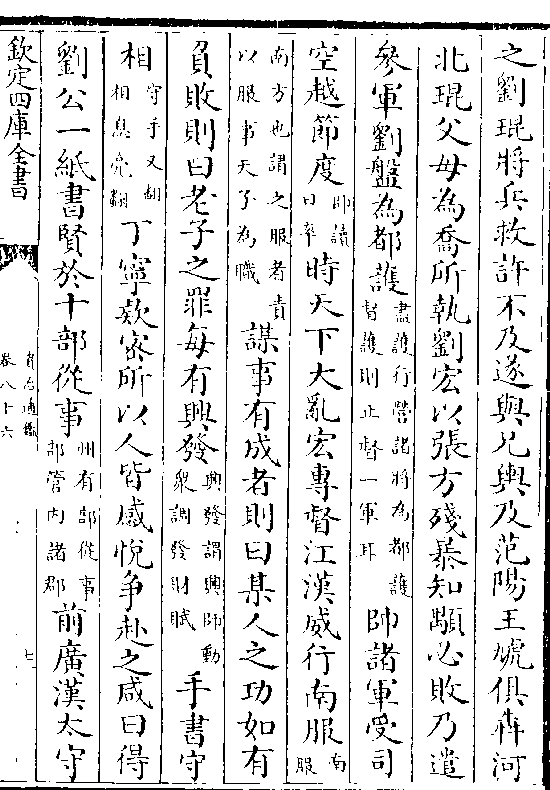 之劉琨將兵救許不及遂與兄輿及范陽王虓俱犇河
北琨父母為喬所執劉宏以張方殘暴知顒必敗乃遣
參軍劉盤為都護盡護行營諸將為都護督護則止督一軍耳帥諸軍受司
空越節度帥讀曰率時天下大亂宏專督江漢威行南服南服
南方也謂之服者責以服事天子為職謀事有成者則曰某人之功如有
負敗則曰老子之罪每有興發興發謂興師動衆調發財賦手書守
相守手又翻相息亮翻丁寧欵宻所以人皆感悅争赴之咸曰得
劉公一紙書賢於十部從事州有部從事部管内諸郡前廣漢太守
欽定四庫全書
資治通鑑
卷八十六
七